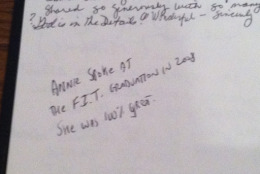 Shared so generously with so many
God is in the Details! Wonderful – Sincerely
ANNIE SPOKE AT
THE F.I.T. GRADUATION IN 2008
SHE WAS 100% GREAT.